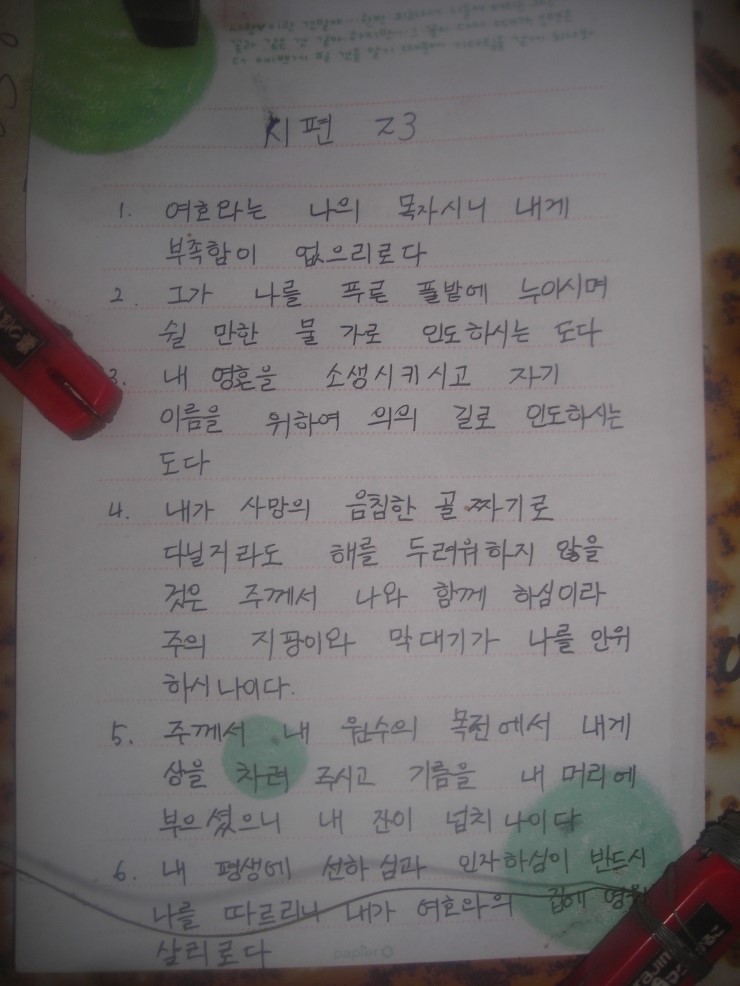 시편 23
1. 여호와는 나의 목자시니 내게
부족함이 없으리로다
2. 그가 나를 푸른 풀밭에 누이시며
쉴 만한 물 가로 인도하시는 도다
3. 내 영혼을 소생시키시고 자기
이름을 위하여 의의 길로 인도하시는
도다
4. 내가 사망의 음침한 골짜기로
다닐지라도 해를 두려워하지 않을
것은 주께서 나와 함께 하심이라
주의 지팡이와 막대기가 나를 안위
하시나이다.
5. 주께서 내 원수의 목전에서 내게
상을 차려 주시고 기름을 내 머리에
부으셨으니 내 잔이 넘치나이다
6. 내 평생에 선하심과 인자하심이 반드시
나를 따르리니 내가 여호와의 집에
살리로다